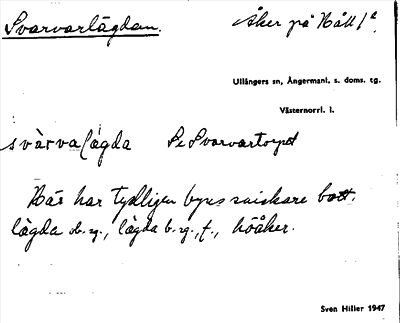 Svarvarlägdan.
Åker på Håll 1²
Ullångers sn, Ångermanl. s. doms. tg.
Västernorrl. l.
svàrvalä̀gda Se Svarvartorpet
Här har tydligen byns snickare bott.
lägda ob. sg., lägda b. sg., f., höåker.
Sven Hiller 1947